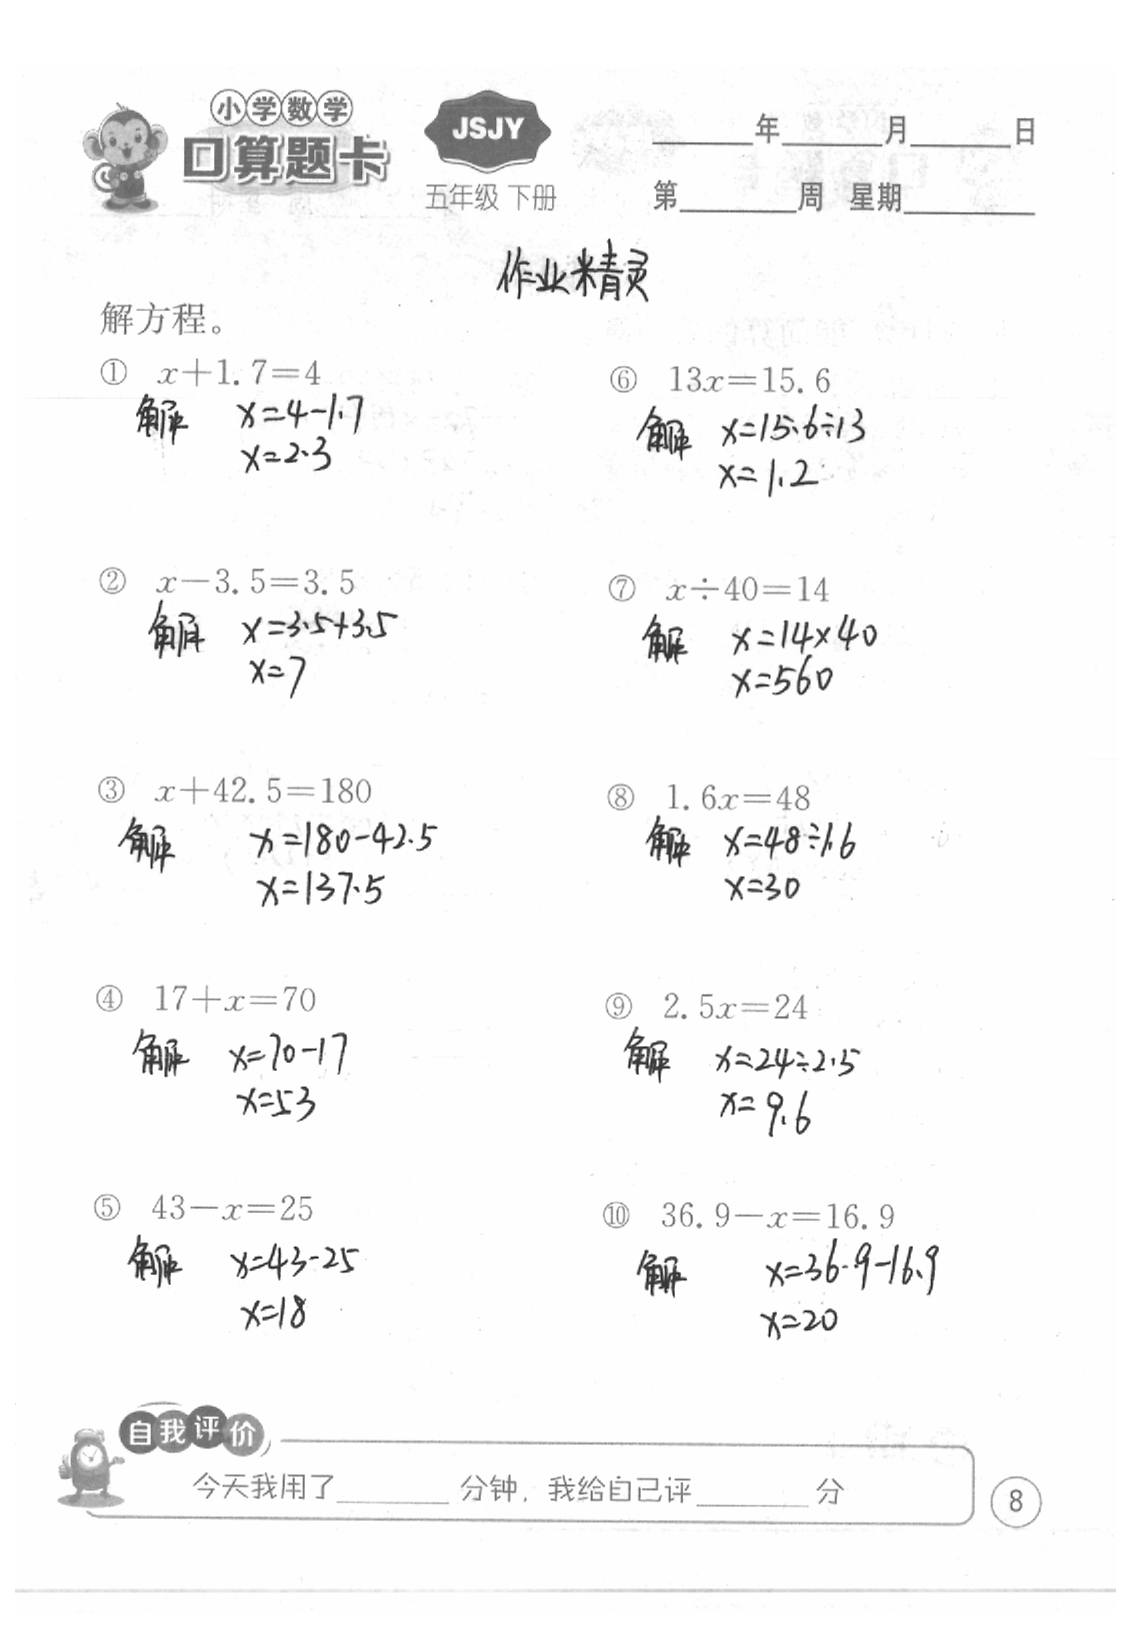 小学数学
口算题卡
JSJY
五年级 下册
____年____月____日
第____周 星期____
作业精灵
解方程。
① x+1.7=4
解 x=4-1.7
x=2.3
② x-3.5=3.5
解 x=3.5+3.5
x=7
③ x+42.5=180
解 x=180-42.5
x=137.5
④ 17+x=70
解 x=70-17
x=53
⑤ 43-x=25
解 x=43-25
x=18
⑥ 13x=15.6
解 x=15.6÷13
x=1.2
⑦ x÷40=14
解 x=14×40
x=560
⑧ 1.6x=48
解 x=48÷1.6
x=30
⑨ 2.5x=24
解 x=24÷2.5
x=9.6
⑩ 36.9-x=16.9
解 x=36.9-16.9
x=20
自我评价
今天我用了____分钟，我给自己评____分
8